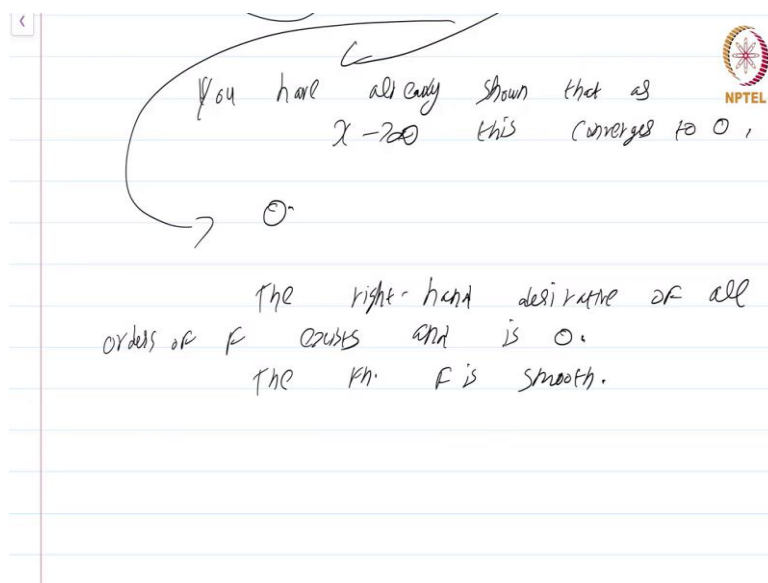 NPTEL
You have already shown that as
x → ∞ this converges to 0,
0.
The right-hand derivative of all
orders of F exists and is 0.
The Fn. F is smooth.